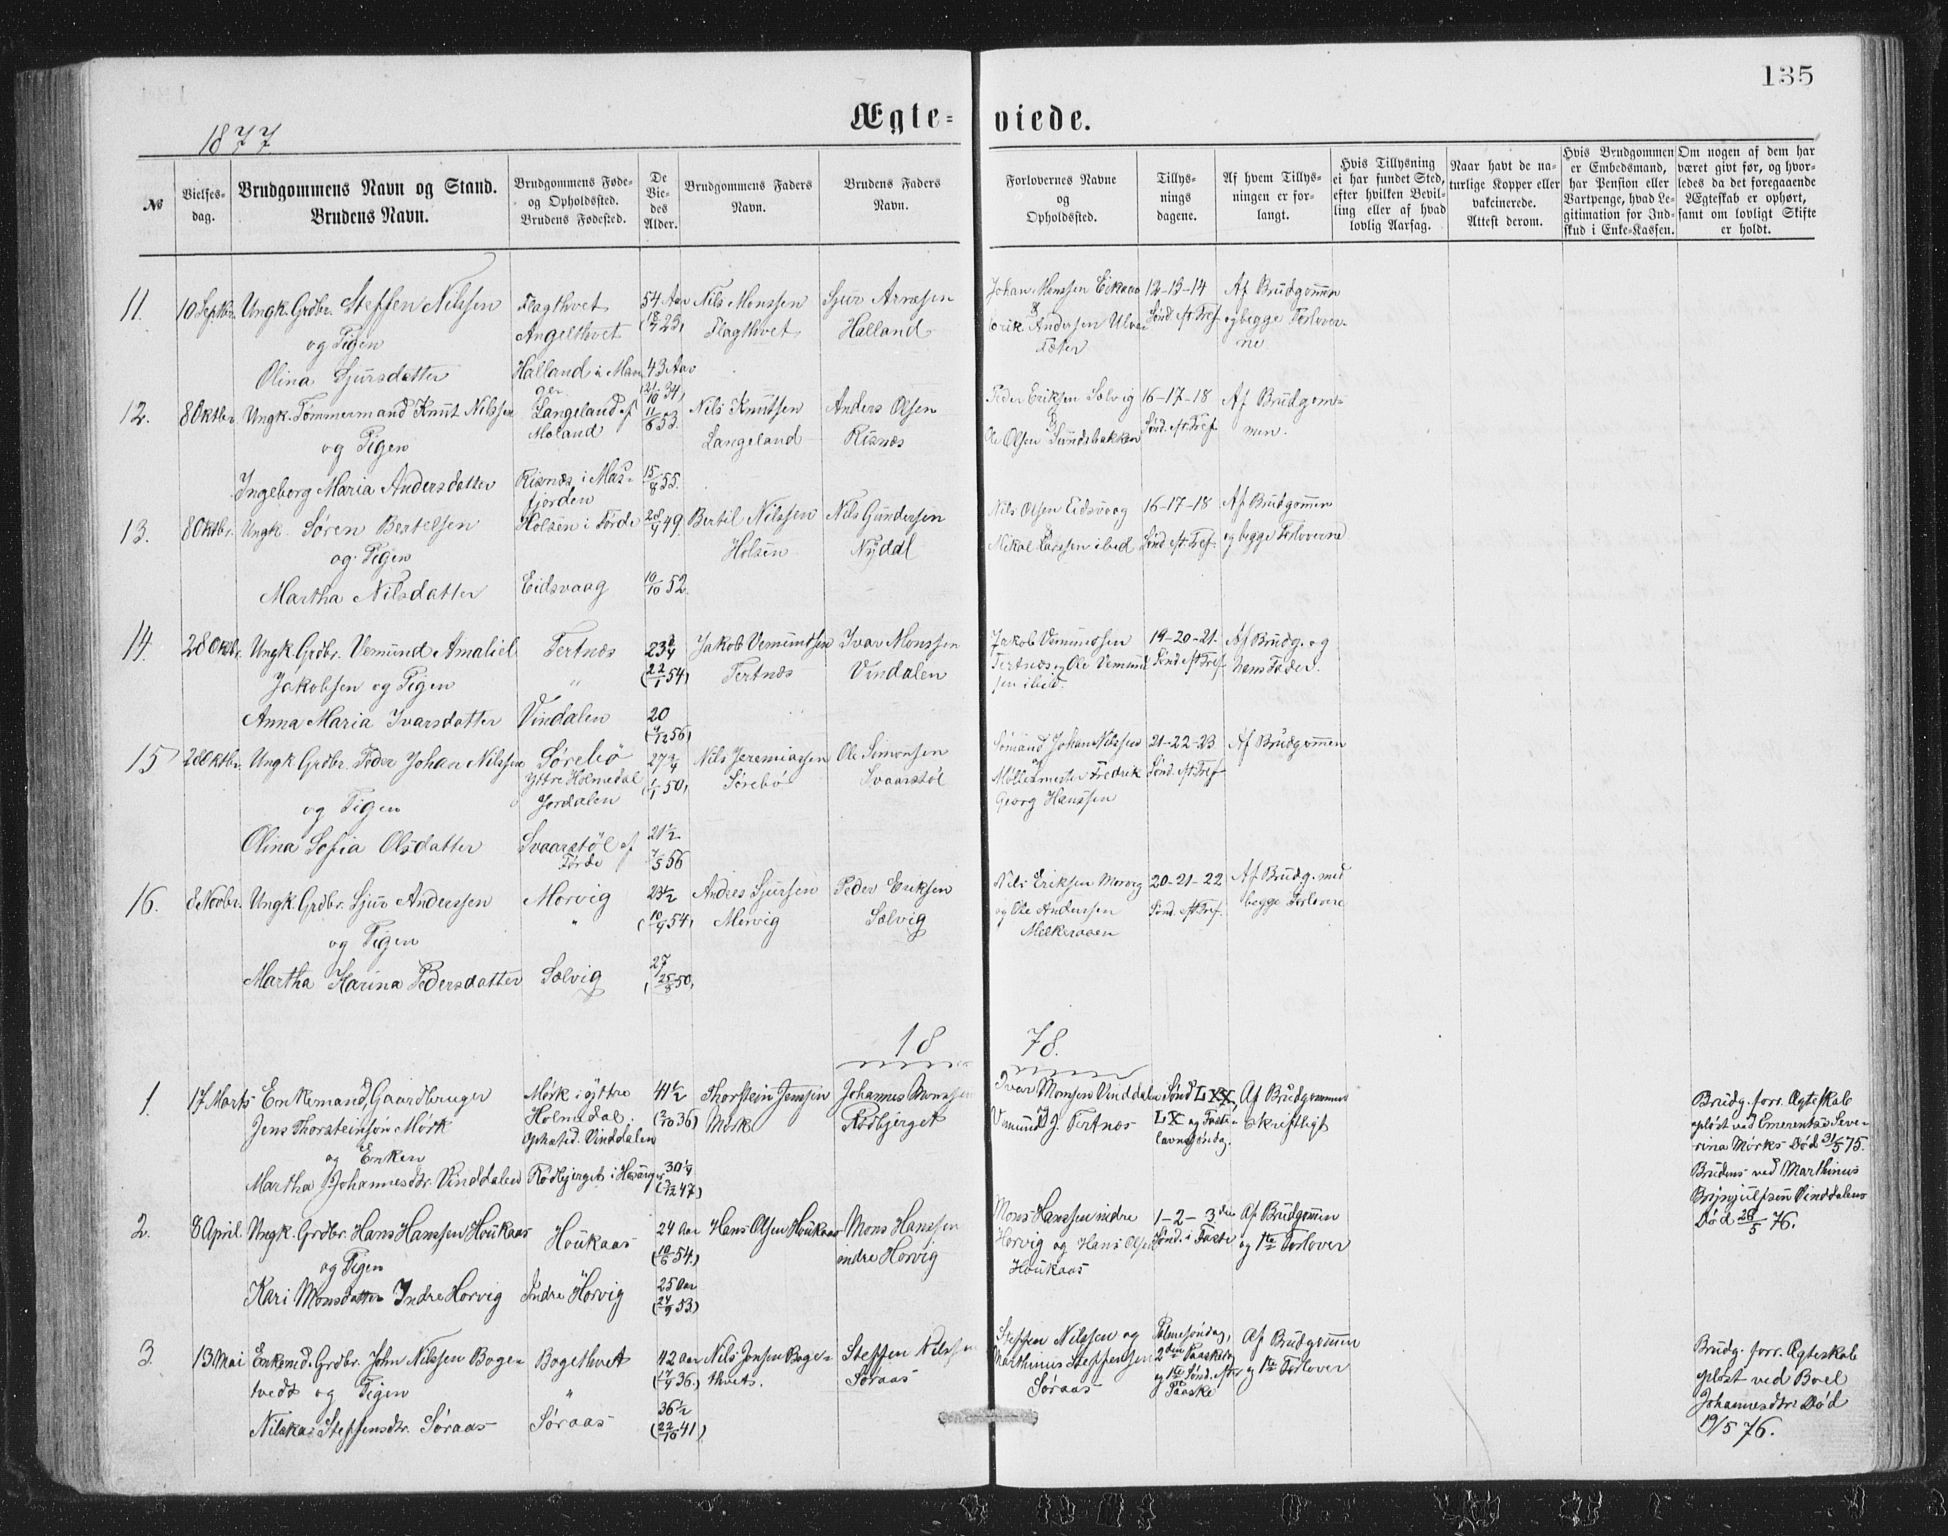 135
Ægte- viede.
1877
№
Vielses-dag.
Brudgommens Navn og Stand.
Brudens Navn.
Brudgommens Føde-
og Opholdssted.
Brudens Fødested.
De
Vie-
des
Alder.
Brudgommens Faders
Navn.
Brudens Faders
Navn.
Forlovernes Navne
og
Opholdssted.
Tillys-
nings
dagene.
Af hvem Tillys-
ningen er for-
langt.
Hvis Tillysning
ei har fundet Sted,
efter hvilken Bevil-
ling eller af hvad
lovlig Aarsag.
Naar havt de na-
turlige Kopper eller
vakcinerede.
Attest derom.
Hvis Brudgommen
er Embedsmand,
har Pension eller
Vartpenge, hvad Le-
gitimation for Ind-
skud i Enke-Kassen.
Om nogen af dem har
været givt før, og hvor-
ledes da det foregaaende
Ægteskab er ophørt,
samt om lovligt Skifte
er holdt.
11. 10 Septbr. Ungk. Grdbr. Steffen Nilssen
og Pigen
Olina Sjursdatter
Flagthvet
Angelthvet
Halland i Man
ger
54 Aar
(18/7 23)
43 Aar
(21/10 34)
Nils Monssen
Flagthvet
Sjur Arnesen
Halland
Johan Monssen Eikaas
&
Erik Andersen
12-13-14
Sønd. eft. Tref.
Af Brudgommen
og begge Forlover-
ne
12. 8 Oktbr. Ungk. Tømmermand Knut Nilssen
og Pigen
Ingeborg Maria Andersdatter
Langeland af
Moland
Risnæs i Mas-
fjorden
11/6 53.
15/8 55.
Nils Knutsen
Langeland
Anders Olsen
Risnæs
Peder Eriksen Sælvig
&
Ole Olsen Sundsbakken
16-17-18
Sønd. eft. Tref.
Af Brudgom-
men.
13. 8 Oktbr. Ungk. Søren Bertelsen
og Pigen
Martha Nilsdatter
Holsen i Førde
Eidsvaag
28/9 49.
10/10 52.
Bertil Nilssen
Holsen
Nils Gundersen
Nydal
Nils Olsen Eidsvaag
&
Nikol. Larssen ibid
16-17-18
Sønd. eft. Tref.
Af Brudgommen
og begge Forloverne
14. 28 Oktbr. Ungk. Grdbr. Vemund Amaliel
Jakobsen og Pigen
Anna Maria Ivarsdatter
Tertnæs
"
Vindalen
23 3/4
(22/1 54)
20
(9/12 56)
Jakob Vemundsen
Tertnæs
Ivar Monssen
Vindalen
Jakob Vemundsen
Tertnæs og Ole Vemund
sen ibid.
19-20-21.
Sønd. eft. Tref.
Af Brudg. og
hans Fader.
15 28 Oktbr. Ungk. Grdbr. Peder Johan Nilssen
og Pigen
Olina Sofia Olsdatter
Sørebø
Yttre Holmedal
Jordalen
Svaarstøl af
Førde
27 3/4
(1/1 50)
21 1/2
7/5 56
Nils Jeremiassen
Sørebø
Ole Simonsen
Svaarstøl
Sømand Johan Nilssen
og
Møllermester Fredrik
Georg Hanssen
21-22-23
Sønd. eft. Tref.
Af Brudgommen
16. 8 Novbr. Ungk. Grdbr. Sjur Anderssen
og Pigen
Martha Karina Pedersdatter
Morvig
"
Sælvig
23 1/2
(10/4 54)
27
(25/8 50)
Andres Sjursen
Morvig
Peder Eriksen
Sælvig
Nils Eriksen Morvig
og Ole Anderssen
20-21-22
Sønd. eft. Tref.
Af Brudg. med
begge Forlovere
1878.
1. 17 Marts Enkemand, Gaardbruger
Jens Thorsteinsøn Mørk
og Enken
Martha Johannesdtr. Vinddalen
Mørk i yttre
Holmedal,
Opholdst. Vinddalen
Rødbjerget i Hosanger
41 1/2
(2/10 36)
30 1/4
(5/12 47)
Thorstein Jenssen
Mørk
Johannes Monssen
Rødbjerget
Ivar Monsen Vinddalen
og
Vemund J. Tertnæs
Sønd LXX,
LX og Faste-
lavnssøndag.
Af Brudgommen
skriftligt
Brudg. forr. Ægteskab
opløst ved Emerentse Seve-
rina Mørks Død 31/5 75.
Brudens ved Marthinus
Brynjulfsen Vinddalens
Død 26/5 76.
2. 8 April Ungk. Grdbr. Hans Hanssen Houkaas
og Pigen
Kari Monsdatter Indre Horvig
Houkaas
Indre Horvig
24 Aar
(10/6 54.)
25 Aar
(24/9 53)
Hans Olsen Houkaas
Mons Hanssen
indre Horvig
Mons Hanssen indre
Horvig og Hans Olsen
Houkaas
1-2-3die
Sønd. i Faste
Af Brudgommen
og 1te Forlover
3. 13 Mai Enkemd. Grdbr. John Nilssen Boge-
tvedt og Pigen
Nilska Steffensdtr. Søraas
Bogethvet
"
Søraas
42 Aar
(17/4 36.)
36 1/2
(22/10 41)
Nils Jonsen Boge-
thvet.
Steffen Nilssen
Søraas
Steffen Nilssen og
Marthinus Steffensen
Søraas
Palmesøndag,
2den Paaskedag
og 1te Sønd. efter
Paaske
Af Brudgommen
og 1te Forlover
Brudg. forr. Ægteskab
opløst ved Boel
Johannesdtr. Død
19/5 76.